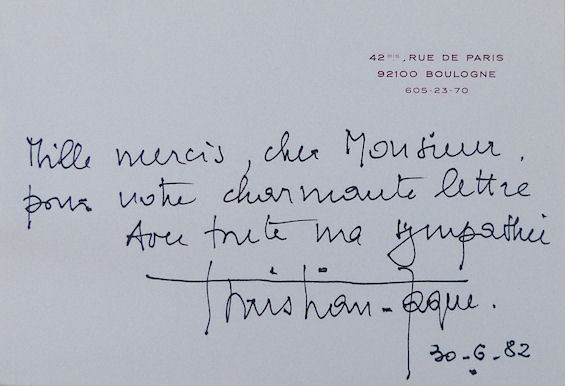 42 bis, RUE DE PARIS
92100 BOULOGNE
605-23-70
Mille mercis, cher Monsieur,
pour votre charmante lettre
Avec toute ma sympathie
Christian-Jaque.
30-6-82